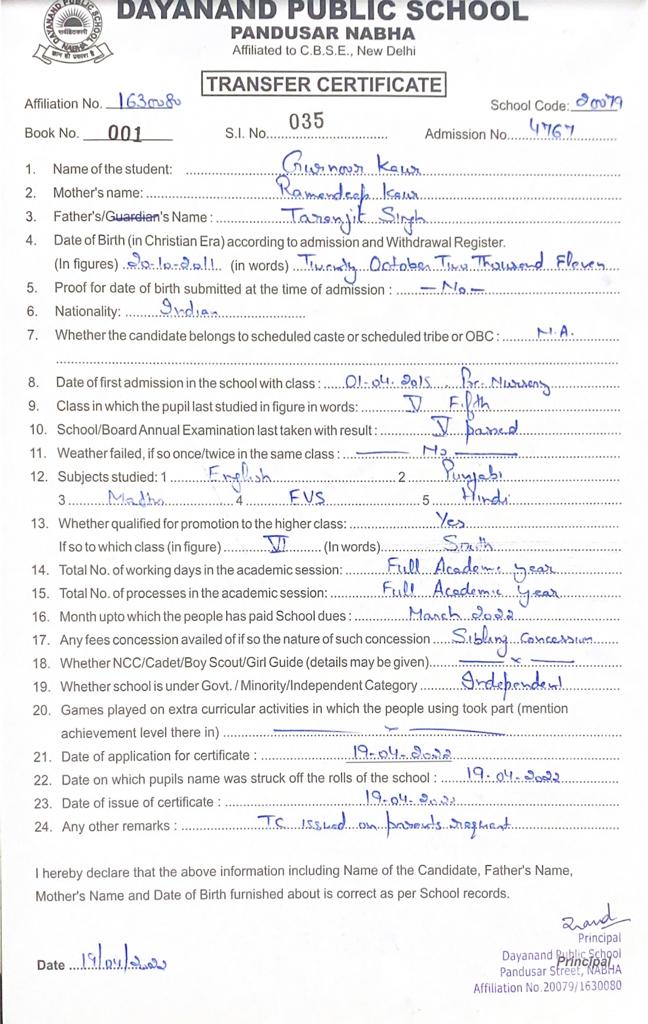 DAYANAND PUBLIC SCHOOL
PANDUSAR NABHA
Affiliated to C.B.S.E., New Delhi
TRANSFER CERTIFICATE
Affiliation No. 1630080 School Code: 20079
Book No. 001 S.I. No. 035 Admission No. 4767
1. Name of the student: Gurnoor Kaur
2. Mother's name: Ramandeep Kaur
3. Father's/Guardian's Name : Taranjit Singh
4. Date of Birth (in Christian Era) according to admission and Withdrawal Register.
(In figures) 20-10-2011 (in words) Twenty October Two Thousand Eleven
5. Proof for date of birth submitted at the time of admission : — No —
6. Nationality: Indian
7. Whether the candidate belongs to scheduled caste or scheduled tribe or OBC : N.A.
8. Date of first admission in the school with class : 01-04-2015 Pre. Nursery
9. Class in which the pupil last studied in figure in words: V Fifth
10. School/Board Annual Examination last taken with result : V passed
11. Weather failed, if so once/twice in the same class : — No —
12. Subjects studied: 1 English 2 Punjabi
3 Maths 4 EVS 5 Hindi
13. Whether qualified for promotion to the higher class: Yes
If so to which class (in figure) VI (In words) Sixth
14. Total No. of working days in the academic session: Full Academic year
15. Total No. of processes in the academic session: Full Academic year
16. Month upto which the people has paid School dues : March 2022
17. Any fees concession availed of if so the nature of such concession Sibling Concession
18. Whether NCC/Cadet/Boy Scout/Girl Guide (details may be given) — x —
19. Whether school is under Govt. / Minority/Independent Category Independent
20. Games played on extra curricular activities in which the people using took part (mention
achievement level there in) — x —
21. Date of application for certificate : 19-04-2022
22. Date on which pupils name was struck off the rolls of the school : 19-04-2022
23. Date of issue of certificate : 19-04-2022
24. Any other remarks : TC issued on parents request
I hereby declare that the above information including Name of the Candidate, Father's Name,
Mother's Name and Date of Birth furnished about is correct as per School records.
Principal
Dayanand Public School
Principal
Date 19/04/2022 Pandusar Street, NABHA
Affiliation No.20079/1630080